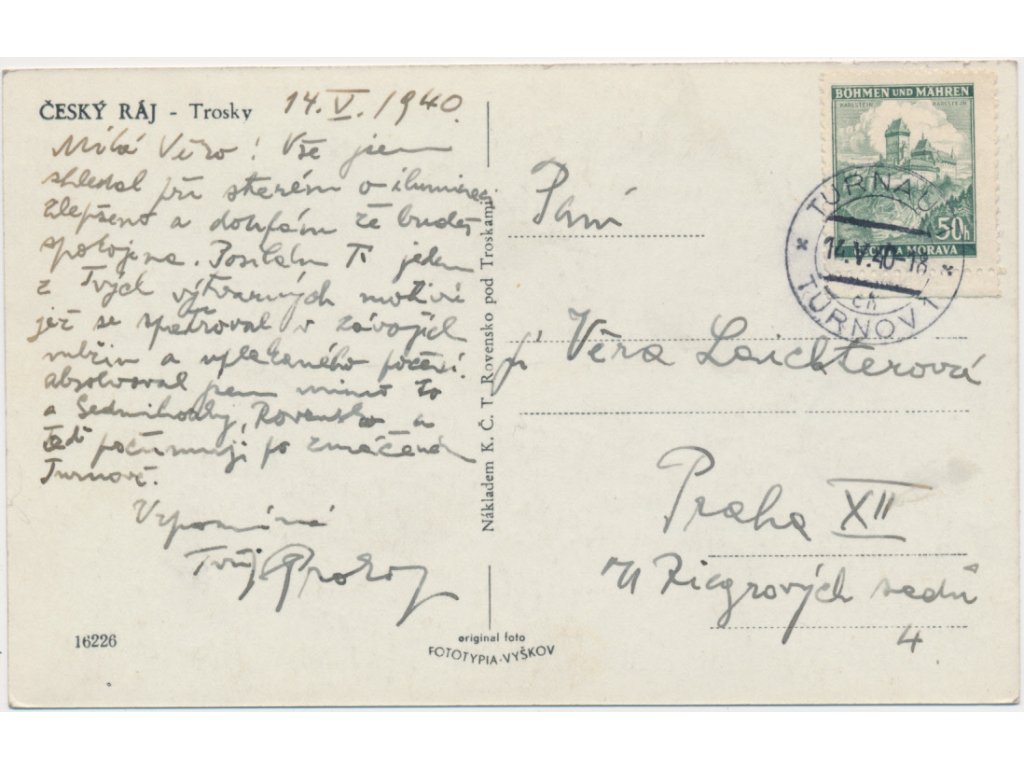 ČESKÝ RÁJ - Trosky 14.V.1940.
Milá Věro! Vše jsem
shledal při starém o iluminaci
zlepšeno a doufám že budeš
spokojena. Posílám Ti jeden
z Tvých výtvarných motivů
jež se spatřoval v závojích
mlžin a uplakaného počasí.
absolvoval jsem mimo to
a Sedmihorky, Rovensko a
teď počůmuji po zmáčeném
Turnově.
Vzpomíná
Tvůj Prokop
16226
Nákladem K. Č. T. Rovensko pod Troskami
original foto
FOTOTYPIA-VYŠKOV
BÖHMEN UND MÄHREN
KARLSTEIN KARLŠTEJN
50h
ČECHY A MORAVA
TURNAU
14.V.40-18
TURNOV 1
Paní
Věra Laichterová
Praha XII
U Riegrových sadů
4